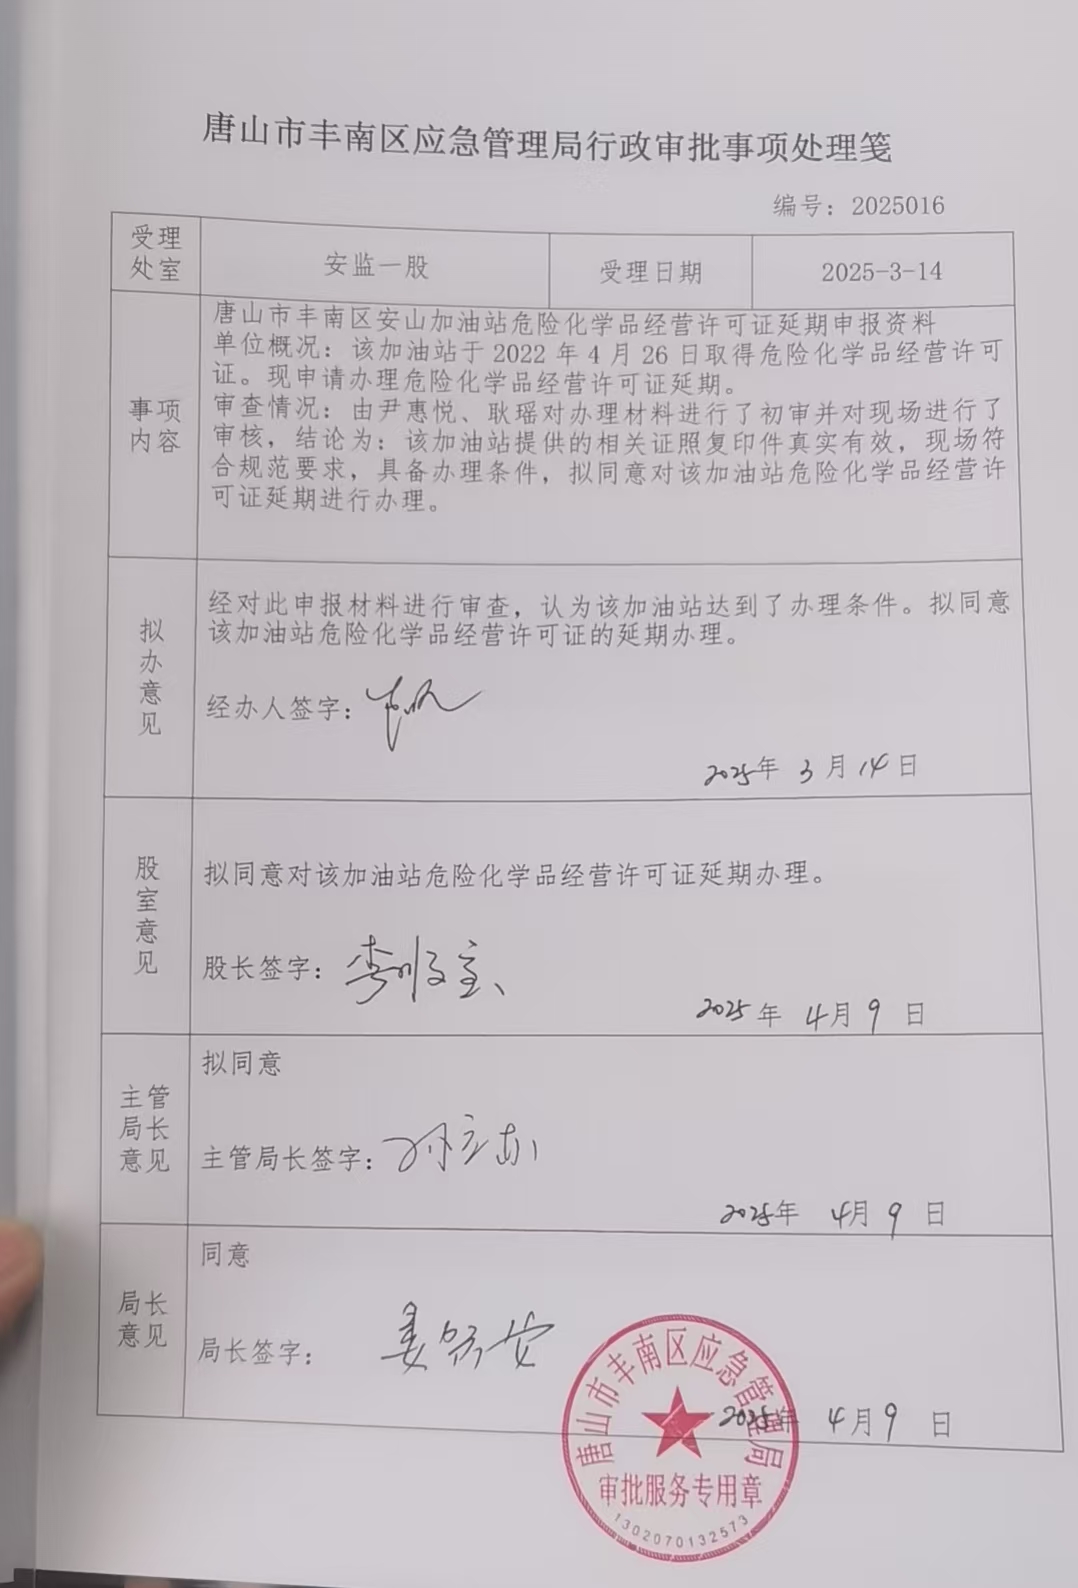 唐山市丰南区应急管理局行政审批事项处理笺
编号：2025016
受理处室
安监一股
受理日期
2025-3-14
事项内容
唐山市丰南区安山加油站危险化学品经营许可证延期申报资料
单位概况：该加油站于 2022 年 4 月 26 日取得危险化学品经营许可
证。现申请办理危险化学品经营许可证延期。
审查情况：由尹惠悦、耿瑶对办理材料进行了初审并对现场进行了
审核，结论为：该加油站提供的相关证照复印件真实有效，现场符
合规范要求，具备办理条件，拟同意对该加油站危险化学品经营许
可证延期进行办理。
拟办意见
经对此申报材料进行审查，认为该加油站达到了办理条件。拟同意
该加油站危险化学品经营许可证的延期办理。
经办人签字：
2025年 3 月 14 日
股室意见
拟同意对该加油站危险化学品经营许可证延期办理。
股长签字：
2025 年 4 月 9 日
主管局长意见
拟同意
主管局长签字：
2025年 4月 9 日
局长意见
同意
局长签字：
2025年 4月 9 日
唐山市丰南区应急管理局
审批服务专用章
1302070132573